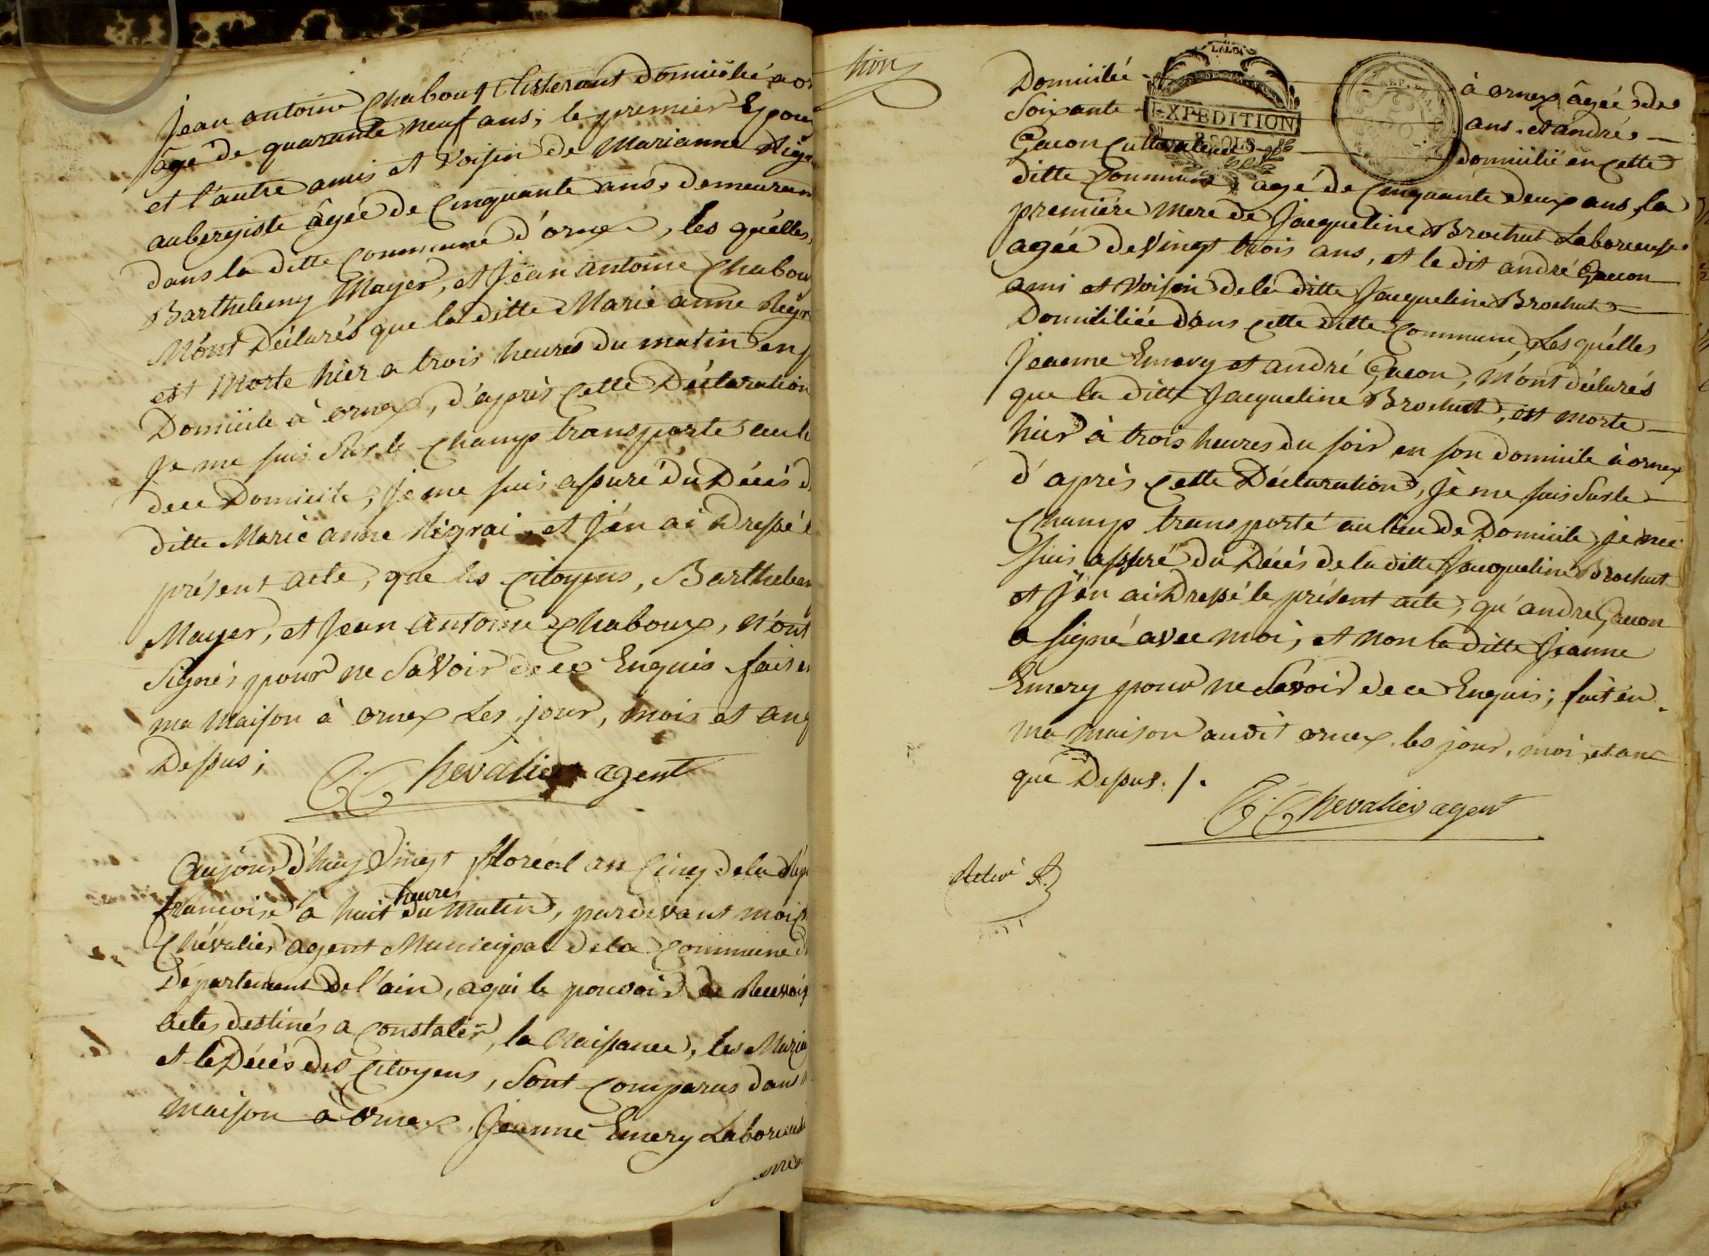 Jean antoine Chaboux tisserant domicilié a or
âgé de quarante neuf ans, le premier Epou
et l'autre amis et voisin de Marianne Négr
aubergiste âgée de cinquante ans, demeuran
dans la ditte commune d'ornex, les quélles,
Barthelemy Mayer, et Jean antoine Chabou
M'ont Déclarés que la ditte Marie anne Négr
est Morte hier a trois heures du matin en s
Domicile à ornex, d'après cette Déclaration
Je me suis sur le champ transporté au li
de ce Domicile, Je me suis assuré du Décès d
ditte Marie anne Négrai, et J'en ai Dressé l
présent acte, que les citoyens, Barthelem
Mayer, et Jean Antoine Chaboux, n'ont
signés pour ne Savoir de ce Enquis fait en
ma maison à ornex Les jour, mois et an q
Dessus;
Chevalier agent
Aujourd'huy vingt floréal an Cinq de la Rép
francoise à huit heures du Matin, pardevant moi
Chevalier agent Municipal de la commune d
Département de l'ain, a qui le pouvoir de Recevoir
actes destinés a constater, la Naissance, les Maria
et le Décès des Citoyens, Sont comparus dans
maison à ornex, Jeanne Emery Laborieuse
Domicilié à ornex âgée de
soixante ans. et andré
Gacon cultivateur domicilié en cette
LA LOI
EXPEDITION
ditte commune, agé de Cinquante deux ans, la
première mere de Jacqueline Brochut Laborieuse
agée de vingt trois ans, et le dit andré Gacon
ami et voisin de la ditte Jacqueline Brochut
Domiciliée dans cette ditte commune, Les quélles
Jeanne Emery et andré Gacon, m'ont déclarés
que la ditte Jacqueline Brochut, est morte
hier à trois heures du soir en son domicile à ornex
d'après cette Déclaration, Je me suis sur le
champ transporté au lieu de Domicile, je me
suis assuré du Décès de la ditte Jacqueline Brochut
et J'en ai Dressé le présent acte, qu'andré Gacon
a signé avec moi, et non la ditte Jeanne
Emery pour ne Savoir de ce Enquis; fait en
ma maison audit ornex, les jour, moi, et an
que Dessus./.
Chevalier agent